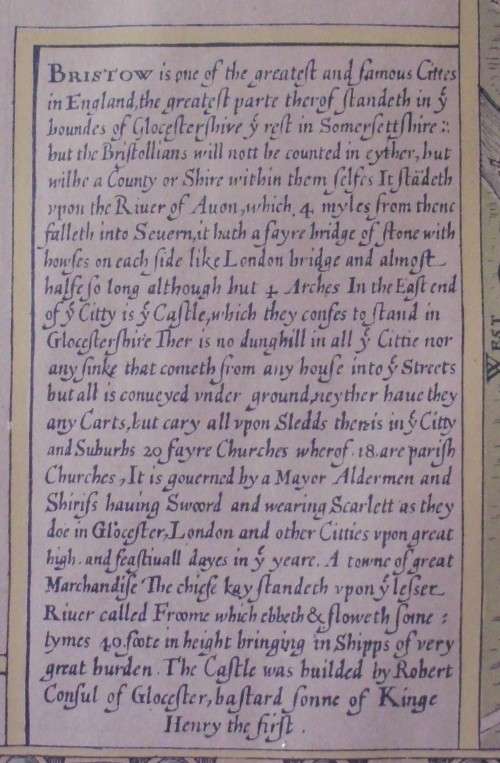 BRISTOW is one of the greatest and famous Citties
in England, the greatest parte therof standeth in yͤ
boundes of Glocestershire yͤ rest in Somersettshire :
but the Bristollians will nott be counted in eyther, but
wilbe a County or Shire within them selfes It stãdeth
vpon the River of Auon, which 4 myles from thenc
falleth into Seuern, it hath a fayre bridge of stone with
howses on each side like London bridge and almost
halfe so long although but 4 Arches In the East end
of yͤ Citty is yͤ Castle, which they confes to stand in
Glocestershire Ther is no dunghill in all yͤ Cittie nor
any sinke that cometh from any house into yͤ Streets
but all is conueyed vnder ground, neyther haue they
any Carts, but cary all vpon Sledds ther is in yͤ Citty
and Suburbs 20 fayre Churches wherof .18. are parish
Churches, It is governed by a Mayor Aldermen and
Shirifs hauing Sword and wearing Scarlett as they
doe in Glocester, London and other Citties vpon great
high. and feastiuall dayes in yͤ yeare. A towne of great
Marchandise The chiefe kay standeth vpon yͤ lesser
River called Froome which ebbeth & floweth some :
tymes 40. foote in height bringing in Shipps of very
great burden. The Castle was builded by Robert
Consul of Glocester, bastard sonne of Kinge
Henry the first .
WEST